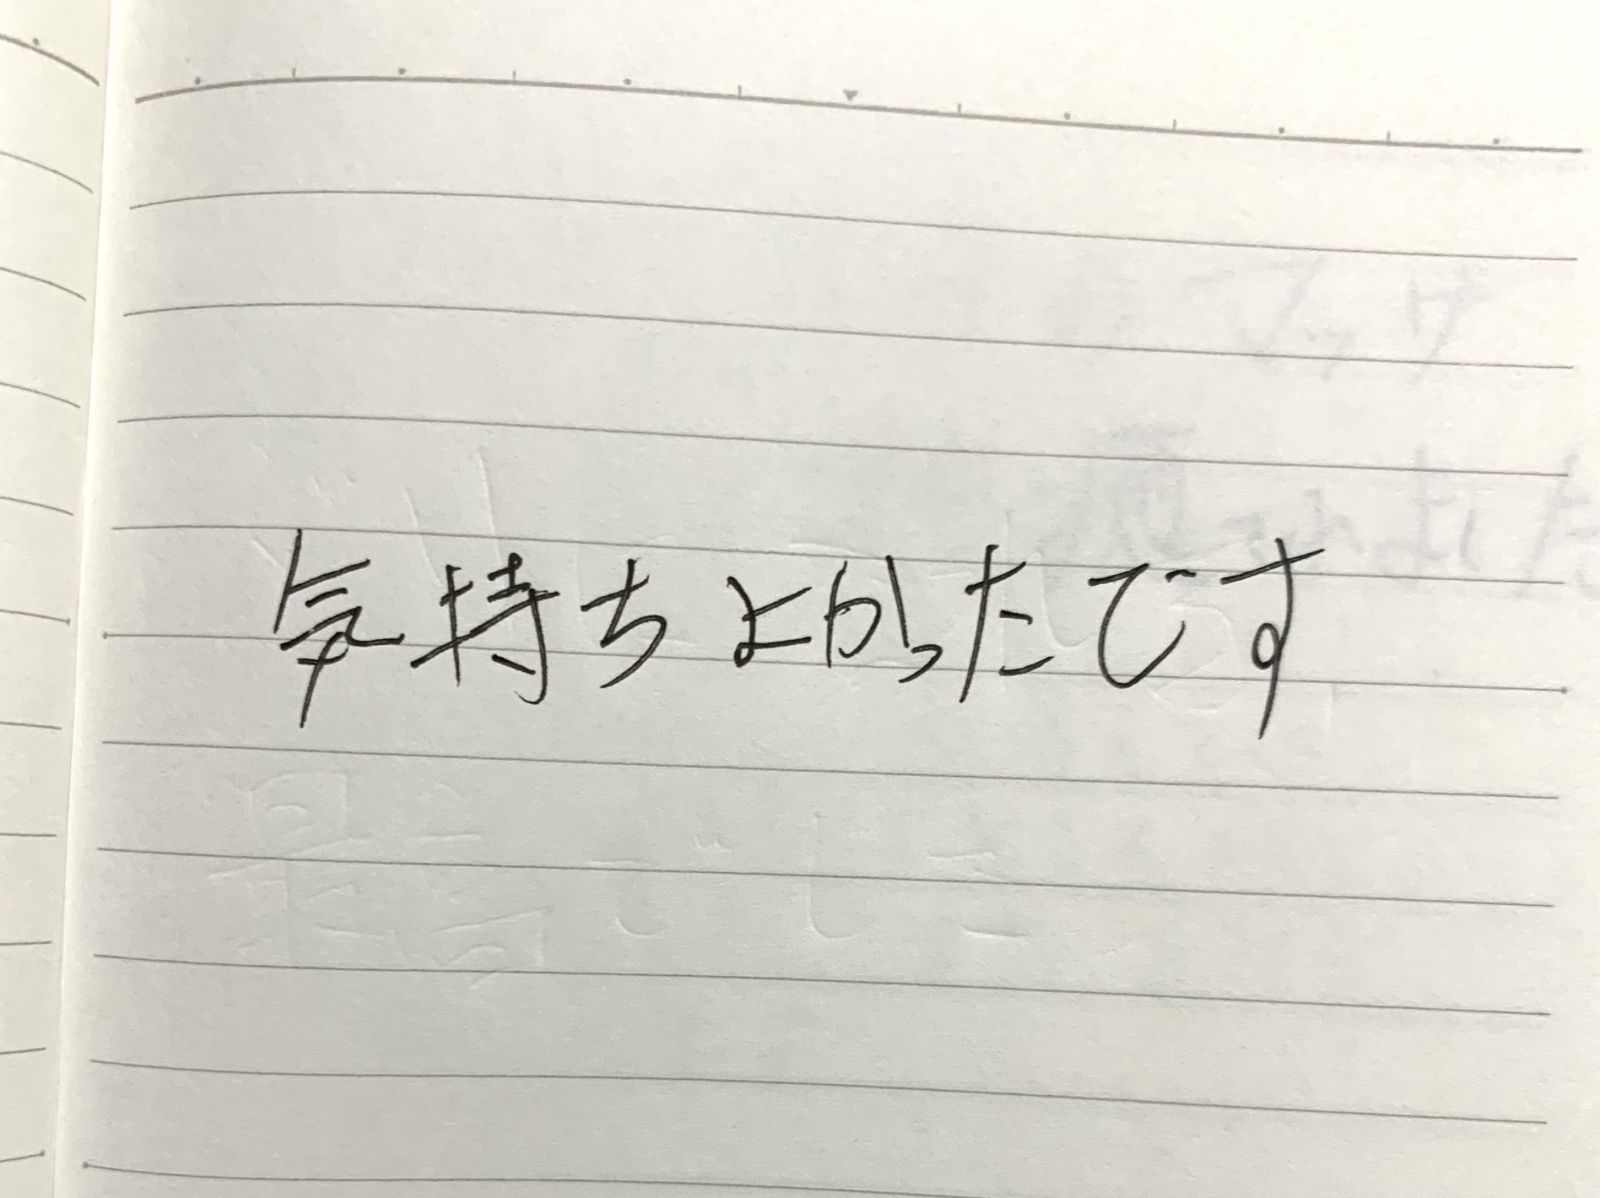 気持ちよかったです